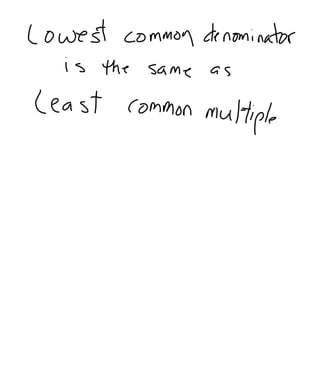 Lowest common denominator
is the same as
Least common multiple